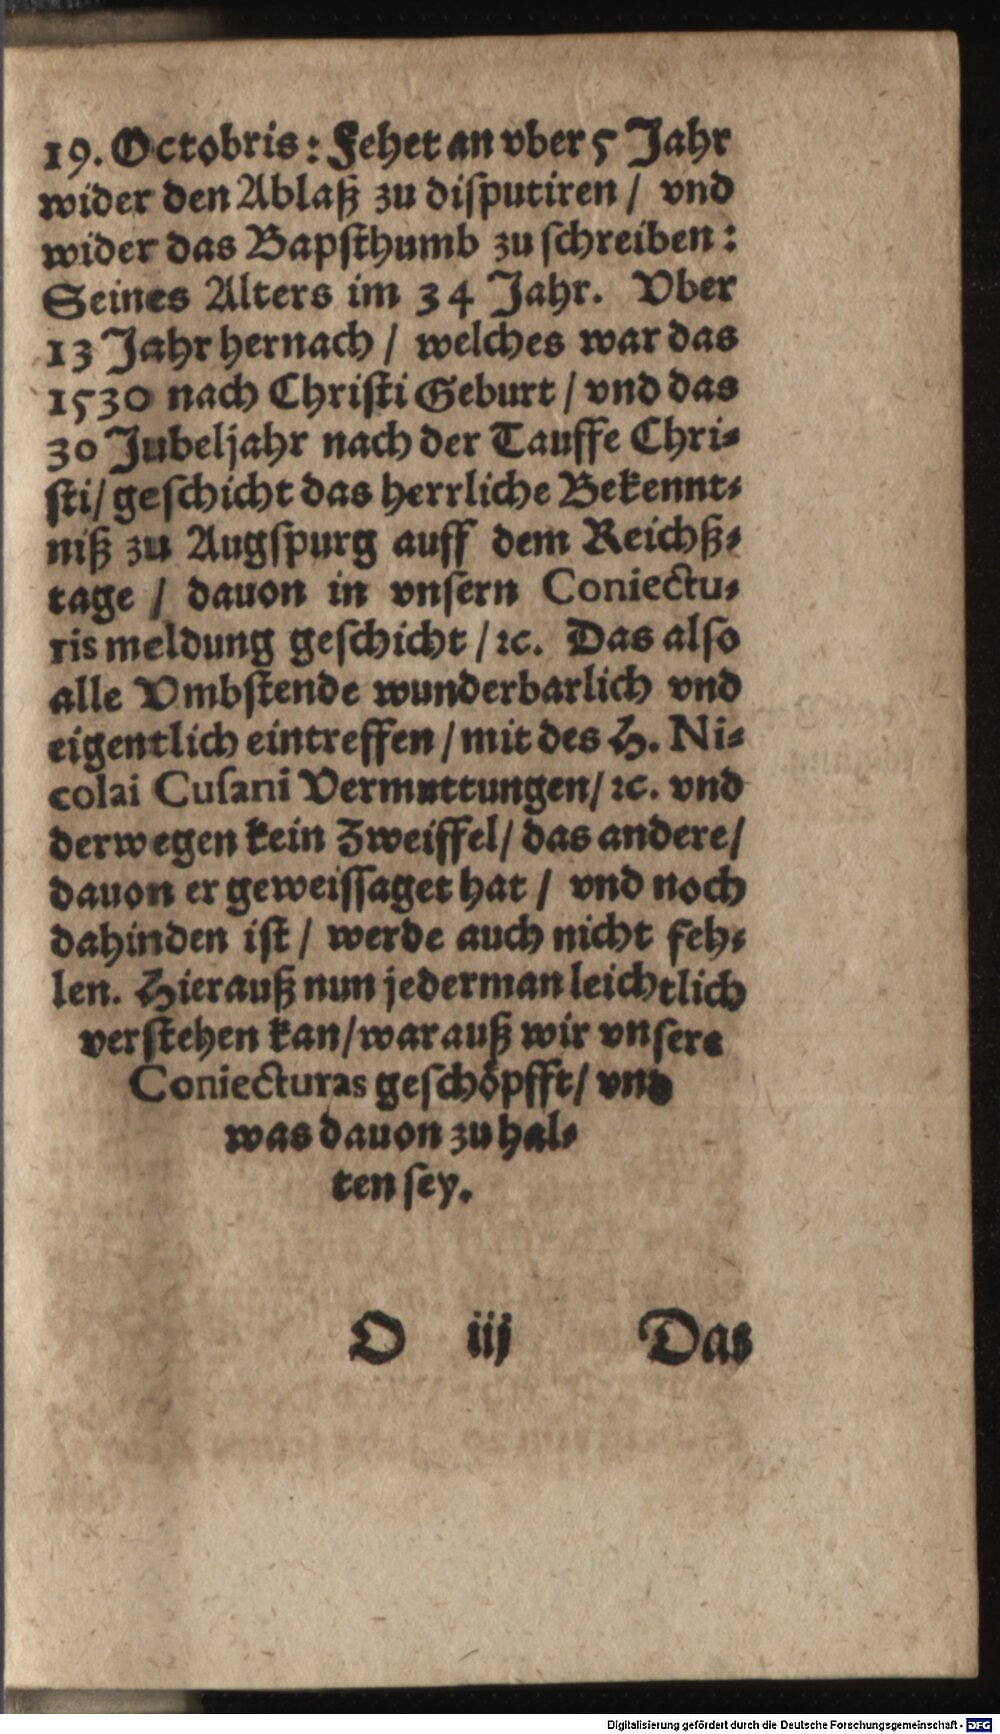 19. Octobris: Fehet an vber 5 Jahr
wider den Ablaß zu diſputiren / vnd
wider das Bapſthumb zu ſchreiben:
Seines Alters im 34 Jahr. Vber
13 Jahr hernach / welches war das
1530 nach Chriſti Geburt / vnd das
30 Jubeljahr nach der Tauffe Chri⸗
ſti / geſchicht das herrliche Bekennt⸗
niß zu Augſpurg auff dem Reichß⸗
tage / dauon in vnſern Coniectu⸗
ris meldung geſchicht / ꝛc. Das alſo
alle Vmbſtende wunderbarlich vnd
eigentlich eintreffen / mit des H. Ni⸗
colai Cuſani Vermuttungen / ꝛc. vnd
derwegen kein Zweiffel / das andere /
dauon er geweiſſaget hat / vnd noch
dahinden iſt / werde auch nicht feh⸗
len. Hierauß nun jederman leichtlich
verſtehen kan / war auß wir vnſere
Coniecturas geſchöpfft / vnd
was dauon zu hal⸗
ten ſey.
O iij Das
Digitalisierung gefördert durch die Deutsche Forschungsgemeinschaft - DFG